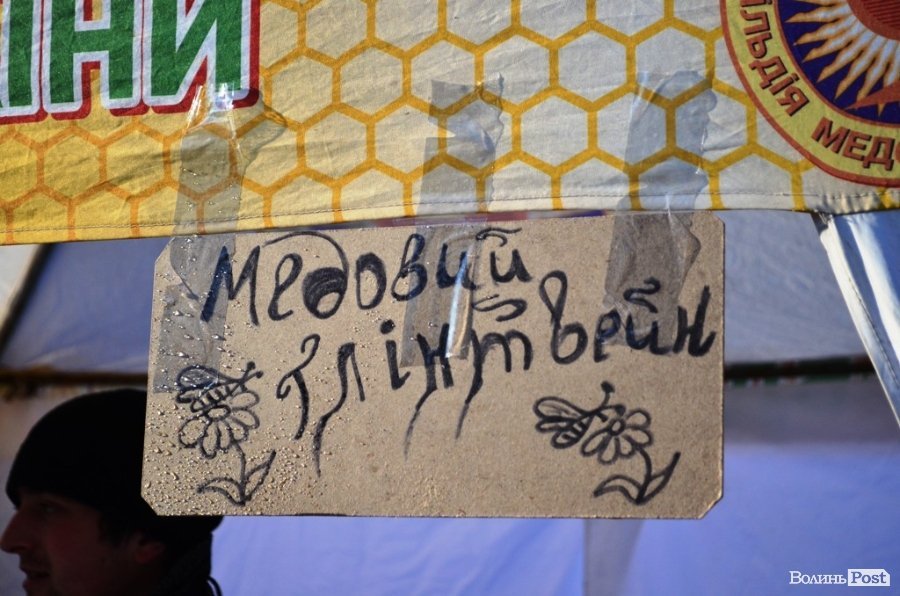 ІНИ
ІЛЬДІЯ МЕДО
Медовий
глінтвейн
Волинь Post